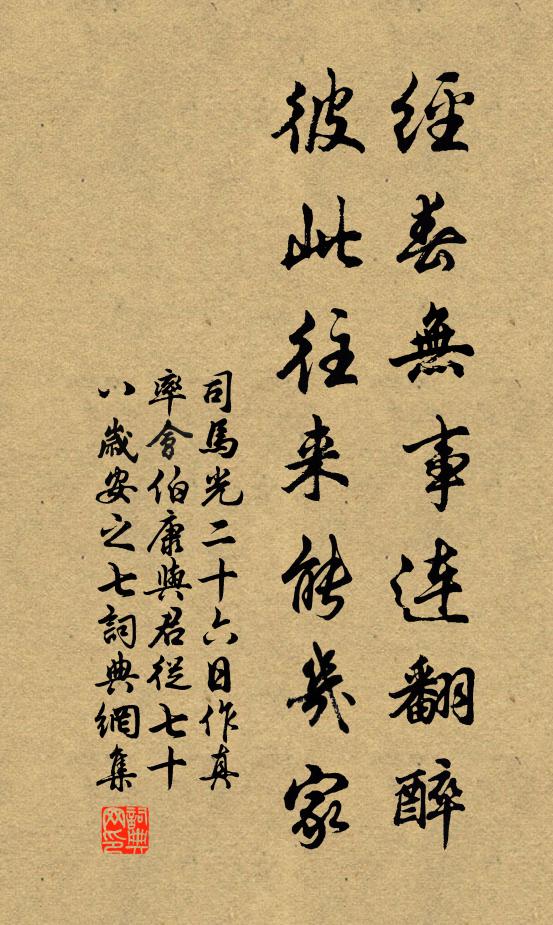 經春無事連翻醉
彼此往来能幾家
司馬光二十六日作真
率會伯康與君從七十
八歲安之七詞典網集
詞典网印